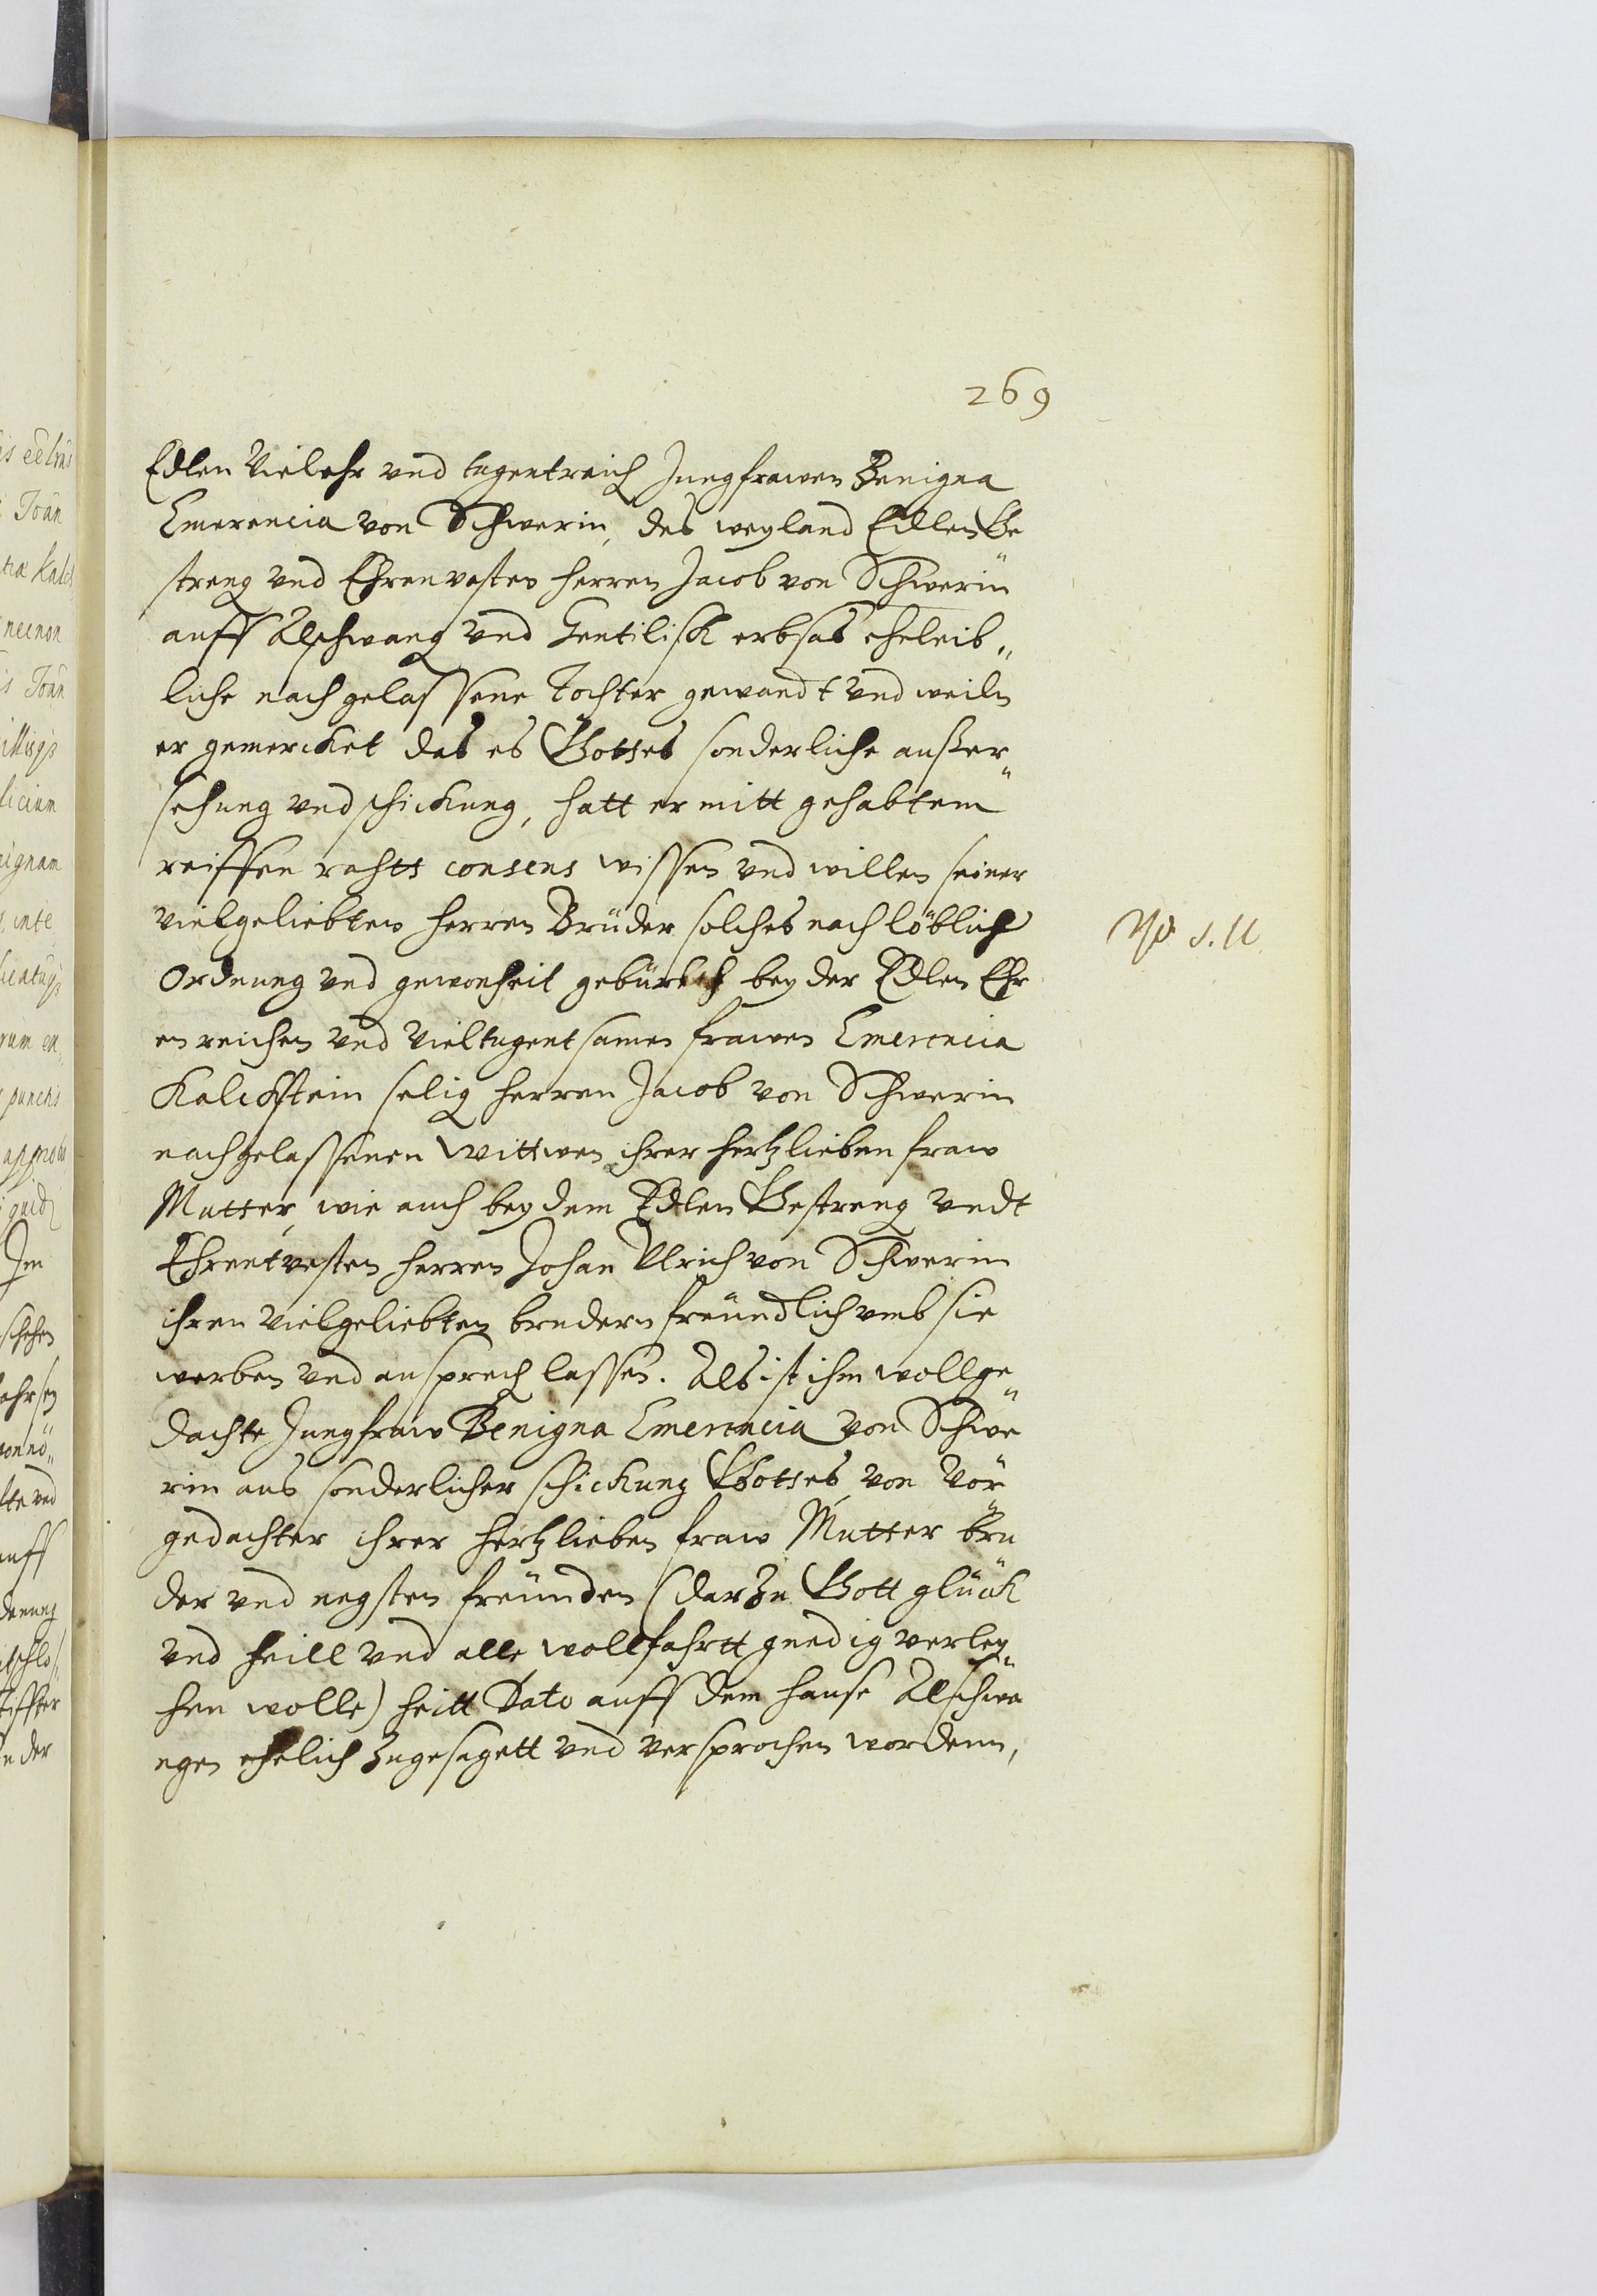 269
Edlen Vielehr vnd tugentreich Jungfrawen Benigna
Emerencia von Schwerin, des weyland Edlen Ge
streng vnd Ehrenvesten herren Jacob von Schwerin
auff Alschwang vnd Gentilisk erbsas eheleib„
liche nachgelassene Tochter gewandt vnd weiln
er gemercket das es Gottes sonderliche außer„
sehung vnd schickung, hatt er mitt gehabtem
reiffen rahtt consens wissen vnd willen seiner
vielgeliebten herren Brüder solches nach löblich
Ordnung vnd gewonheit gebürlich bey der Edlen Ehr
en reichen vnd Vieltugentsamen frawen Emerencia
Kalckstein selig herren Jacob von Schwerin
nachgelassenen Wittwen ihrer hertzlieben fraw
Mutter, wie auch bey dem Edlen Gestreng vndt
Ehrentvesten herren Johan Vlrich von Schwerin
ihren vielgeliebten brudern freundlich vmb sie
werben vnd ansprech lassen. Als ist ihm wollge„
dachte Jungfraw Benigna Emerencia von Schwe
rin aus sonderlicher schickung Gottes von Vor„
gedachter ihrer hertzlieben fraw Mutter bru„
der vnd negsten freunden (darzu Gott glück
vnd heill vnd alle wollfahrtt gnedig verley„
hen wolle) heitt Dato auff dem hause Alschwa
ngen ehelich zugesagett vnd versprochen wordenn,